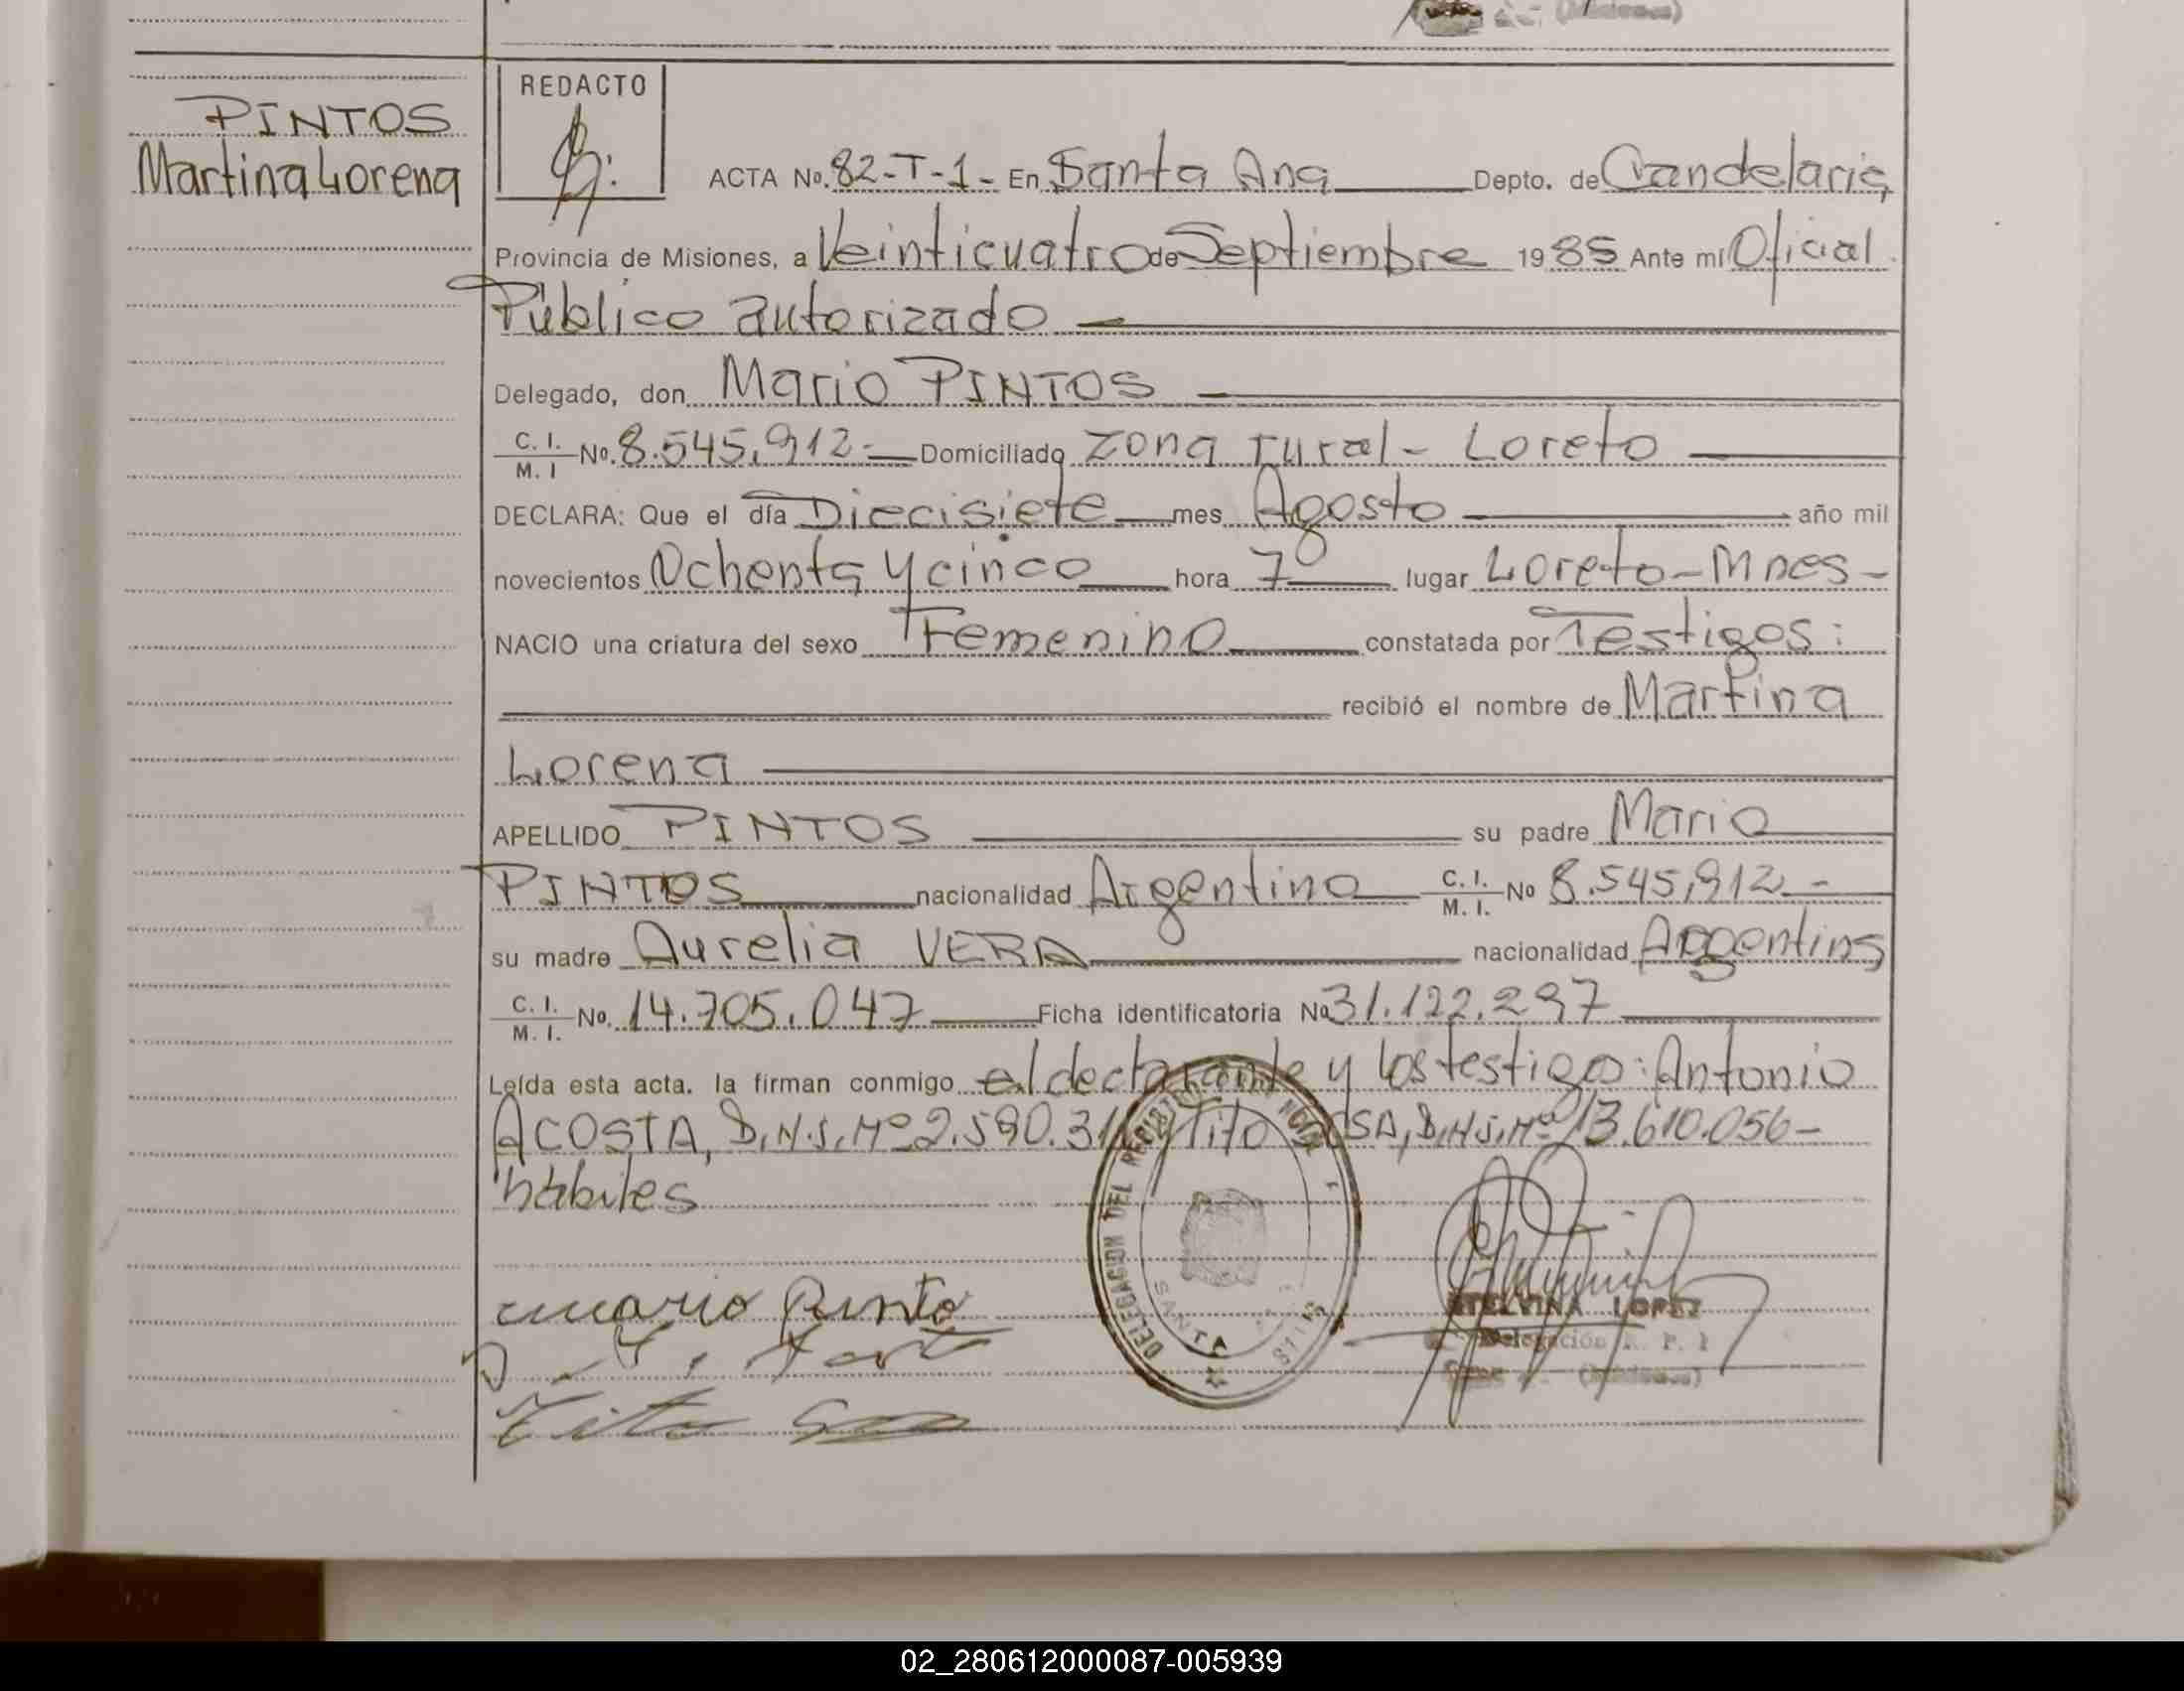 PINTOS
Martina Lorena
REDACTO
ACTA No. 82-T-1- En Santa Ana Depto. de Candelaria,
Provincia de Misiones, a Veinticuatro de Septiembre 1985 Ante mí Oficial
Público autorizado
Delegado, don Mario PINTOS
C. I. / M. I No. 8.545.912- Domiciliado Zona rural - Loreto
DECLARA: Que el día Diecisiete mes Agosto año mil
novecientos Ochenta y cinco hora 7º lugar Loreto-Mnes-
NACIO una criatura del sexo Femenino constatada por Testigos:
recibió el nombre de Martina
Lorena
APELLIDO PINTOS su padre Mario
PINTOS nacionalidad Argentino C. I. / M. I. No 8.545.912-
su madre Aurelia VERA nacionalidad Argentina
C. I. / M. I. No. 14.705.047 Ficha identificatoria No 31.122.297
Leída esta acta. la firman conmigo el declarante y los testigo: Antonio
ACOSTA, D.N.I. Nº 2.590.31 y Tito SA, D.N.I. Nº 13.610.056-
hábiles
DELEGACION DEL REGISTRO
SANTA
mario Pinto
Tito
ETELVINA LOPEZ
Delegación R. P. 1
(Misiones)
02_280612000087-005939